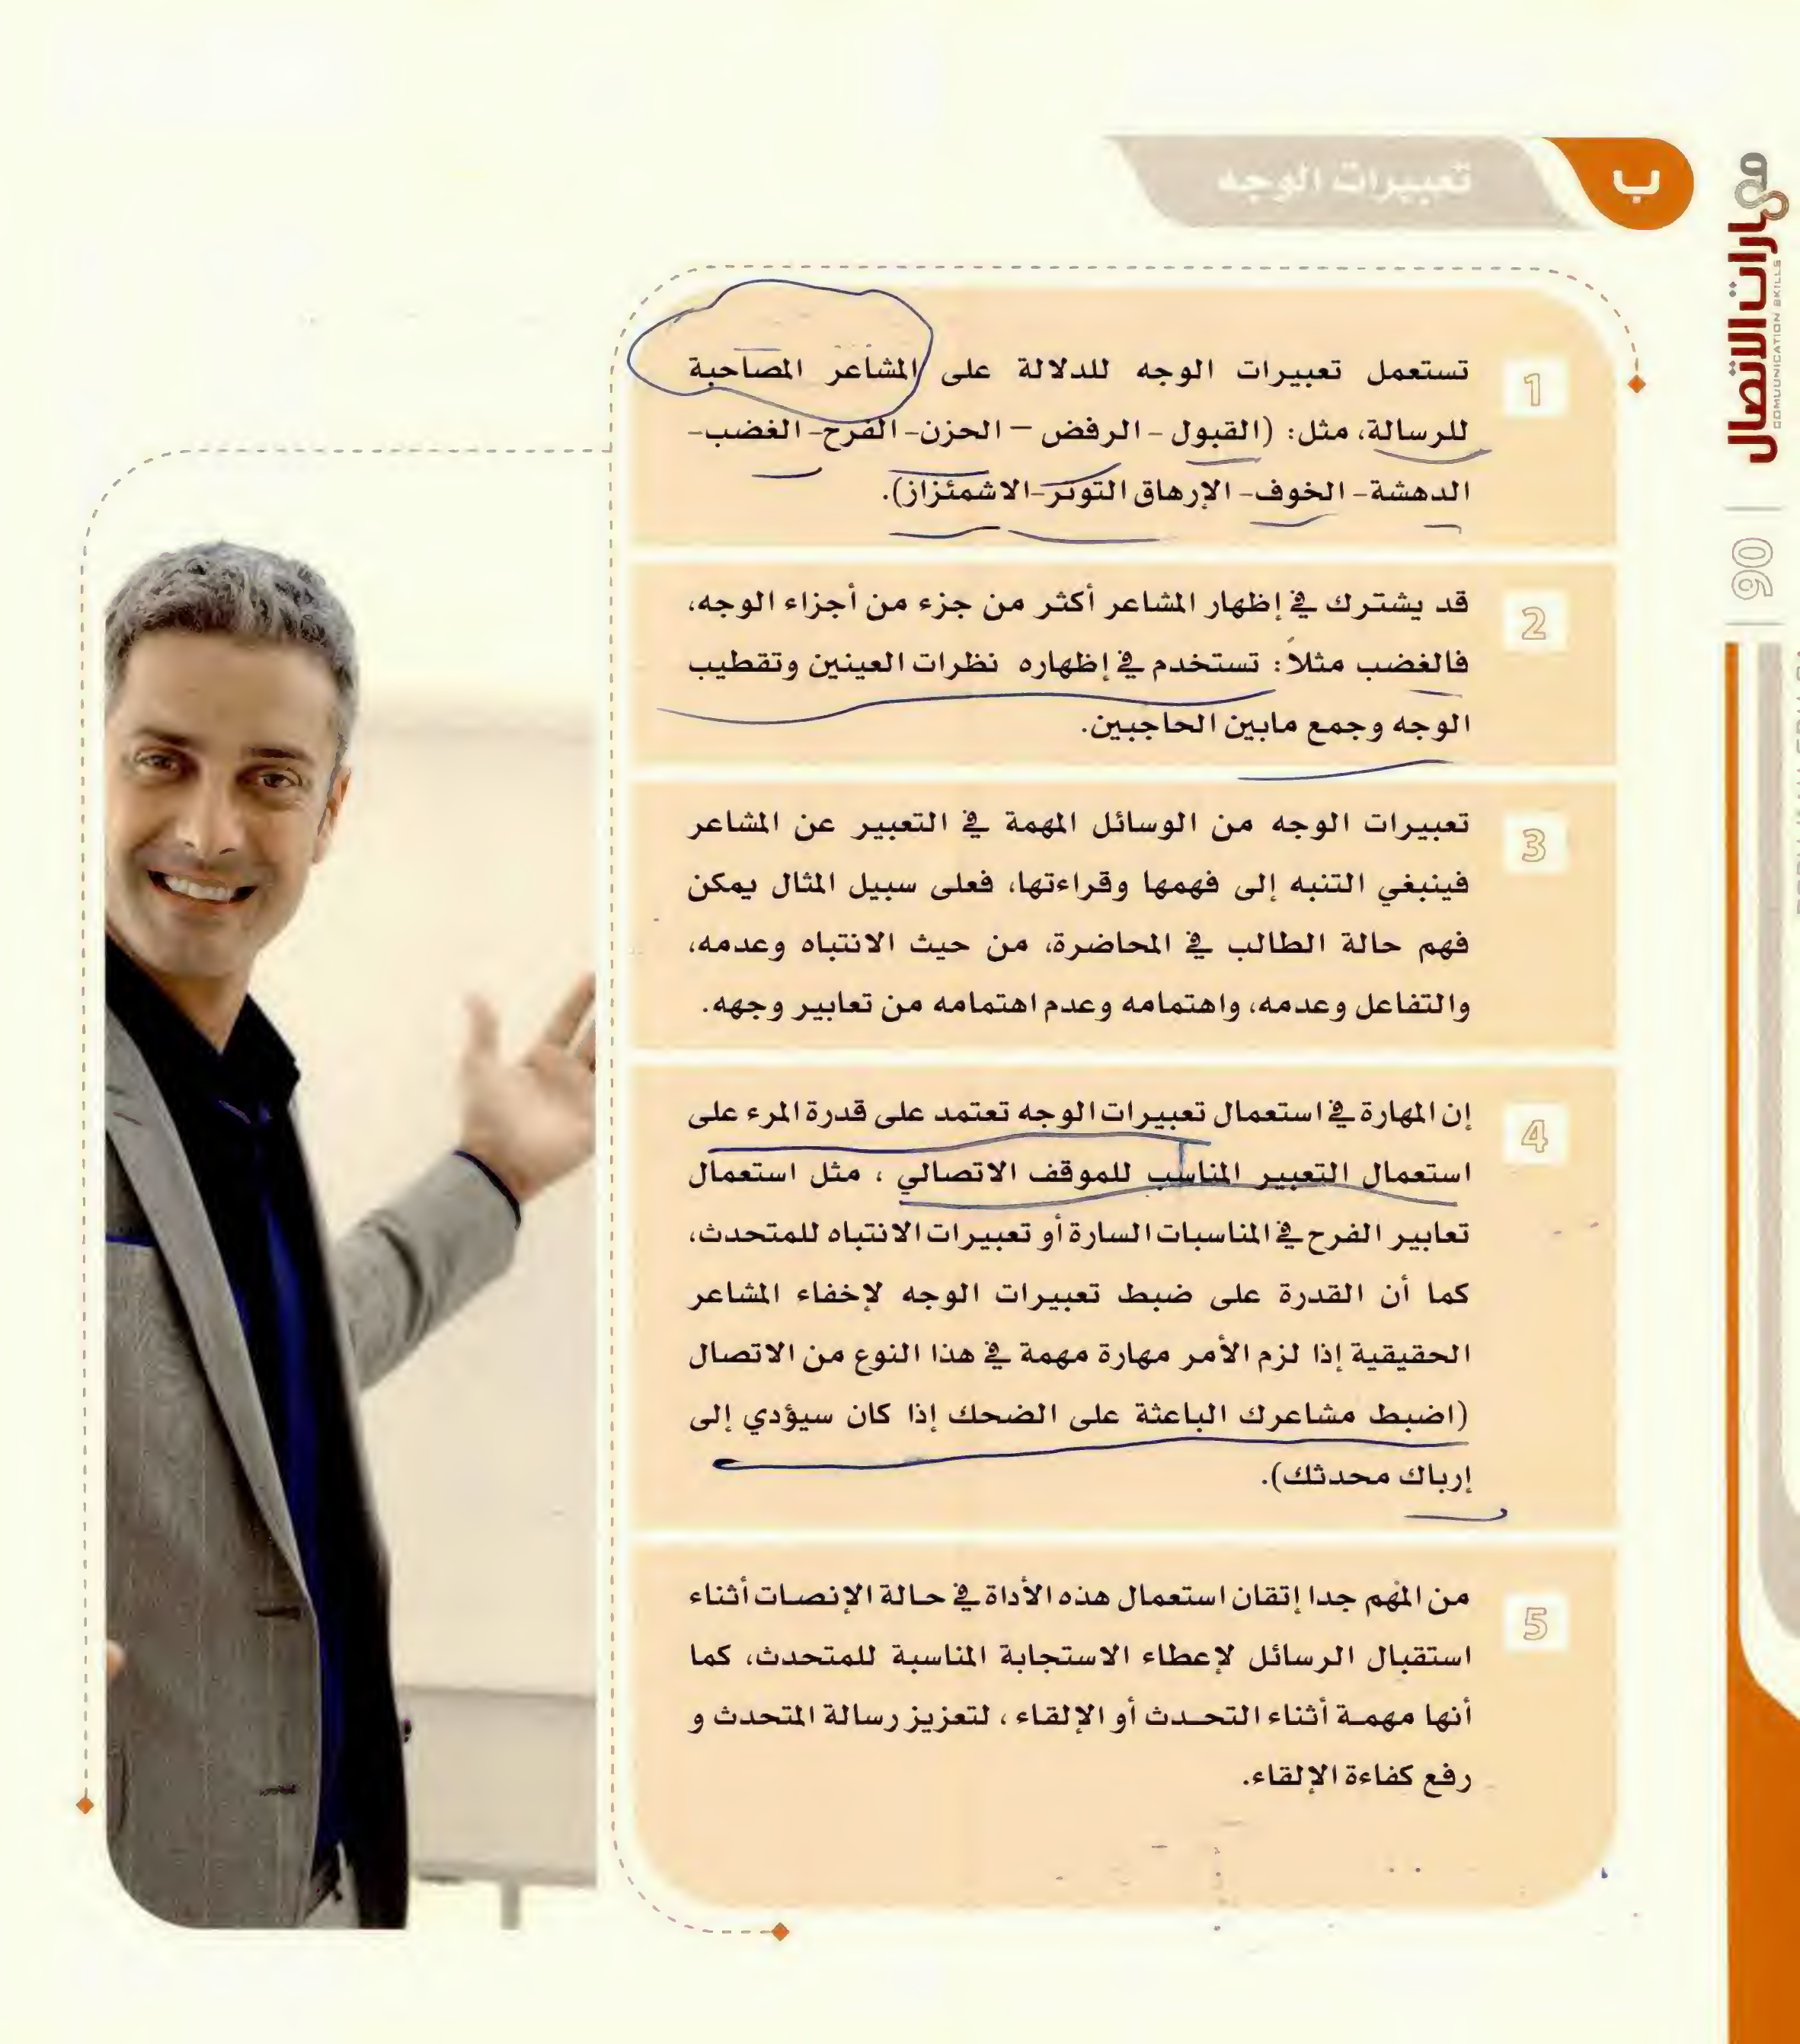 ب
تعبيرات الوجه
مهارات الاتصال
COMMUNICATION SKILLS
90
1
تستعمل تعبيرات الوجه للدلالة على المشاعر المصاحبة
للرسالة، مثل: (القبول - الرفض – الحزن- الفرح- الغضب-
الدهشة- الخوف- الإرهاق التوتر-الاشمئزاز).
2
قد يشترك في إظهار المشاعر أكثر من جزء من أجزاء الوجه،
فالغضب مثلاً: تستخدم في إظهاره نظرات العينين وتقطيب
الوجه وجمع مابين الحاجبين.
3
تعبيرات الوجه من الوسائل المهمة في التعبير عن المشاعر
فينبغي التنبه إلى فهمها وقراءتها، فعلى سبيل المثال يمكن
فهم حالة الطالب في المحاضرة، من حيث الانتباه وعدمه،
والتفاعل وعدمه، واهتمامه وعدم اهتمامه من تعابير وجهه.
4
إن المهارة في استعمال تعبيرات الوجه تعتمد على قدرة المرء على
استعمال التعبير المناسب للموقف الاتصالي ، مثل استعمال
تعابير الفرح في المناسبات السارة أو تعبيرات الانتباه للمتحدث،
كما أن القدرة على ضبط تعبيرات الوجه لإخفاء المشاعر
الحقيقية إذا لزم الأمر مهارة مهمة في هذا النوع من الاتصال
(اضبط مشاعرك الباعثة على الضحك إذا كان سيؤدي إلى
إرباك محدثك).
5
من المهم جدا إتقان استعمال هذه الأداة في حالة الإنصات أثناء
استقبال الرسائل لإعطاء الاستجابة المناسبة للمتحدث، كما
أنها مهمة أثناء التحدث أو الإلقاء ، لتعزيز رسالة المتحدث و
رفع كفاءة الإلقاء.